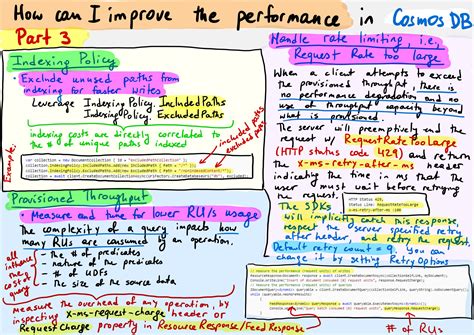 How can I improve the performance in Cosmos DB
Part 3
Indexing Policy
• Exclude unused paths from
indexing for faster writes
Leverage Indexing Policy. IncludedPaths
Indexing Policy. ExcludedPaths
indexing costs are directly correlated to
the # of unique paths indexed
Example:
included paths
excluded paths
Provisioned Throughput
• Measure and tune for lower RU/s usage
The complexity of a query impacts how
many RUs are consumed by an operation.
all influence the cost of query
- The # of predicates
- nature of the predicates
- # of UDFs
- The size of the source data
Measure the overhead of any operation, by
inspecting x-ms-request-charge header or
RequestCharge property in ResourceResponse/FeedResponse
Handle rate limiting, i.e,
Request Rate too large
When a client attempts to exceed
the provisioned throughput, there is
no performance degradation and no
use of throughput capacity beyond
what is provisioned
The server will preemptively end the
request w/ RequestRateTooLarge
(HTTP status code 429) and return
the x-ms-retry-after-ms header
indicating the time in ms that the
user must wait before retrying
the request.
HTTP Status 429,
Status Line: RequestRateTooLarge
x-ms-retry-after-ms :100
The SDKs
will implicitly catch this response,
respect the server specified retry
after header, and retry the request
Default retry count = 9. You can
change it by setting RetryOptions
# of RUs